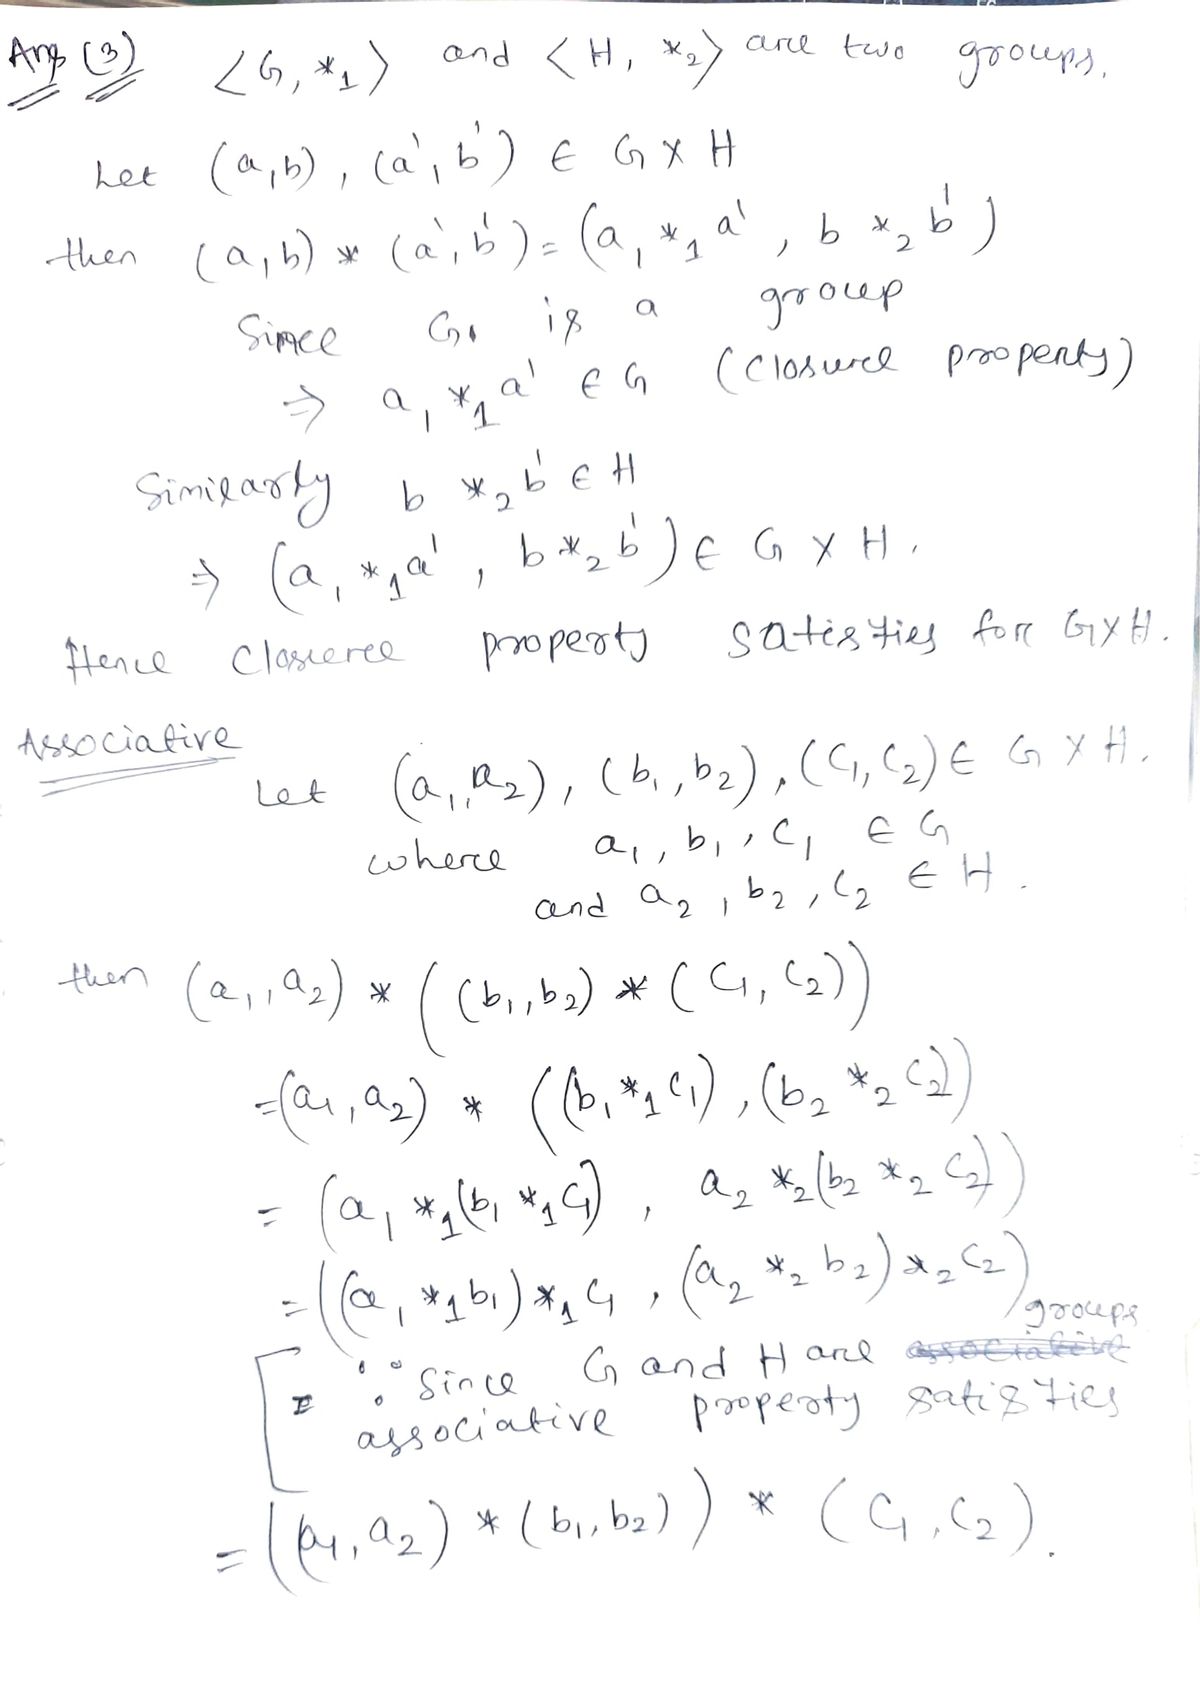 Ans (3) <G, *₁> and <H, *₂> are two groups.
Let (a,b), (a', b') ∈ G × H
then (a,b) * (a', b') = (a, *₁ a' , b *₂ b')
Since G is a group
⇒ a, *₁ a' ∈ G (closure property)
Similarly b *₂ b' ∈ H
⇒ (a, *₁ a' , b *₂ b') ∈ G × H.
Hence closure property satisfies for G×H.
Associative
Let (a₁, a₂), (b₁, b₂), (c₁, c₂) ∈ G × H.
where a₁, b₁, c₁ ∈ G
and a₂, b₂, c₂ ∈ H.
then (a₁, a₂) * ((b₁, b₂) * (c₁, c₂))
= (a₁, a₂) * ((b₁ *₁ c₁), (b₂ *₂ c₂))
= (a₁ *₁ (b₁ *₁ c₁) , a₂ *₂ (b₂ *₂ c₂))
= ((a₁ *₁ b₁) *₁ c₁ , (a₂ *₂ b₂) *₂ c₂)
groups
∵ Since G and H are associative
associative property satisfies
= ((a₁, a₂) * (b₁, b₂)) * (c₁, c₂).